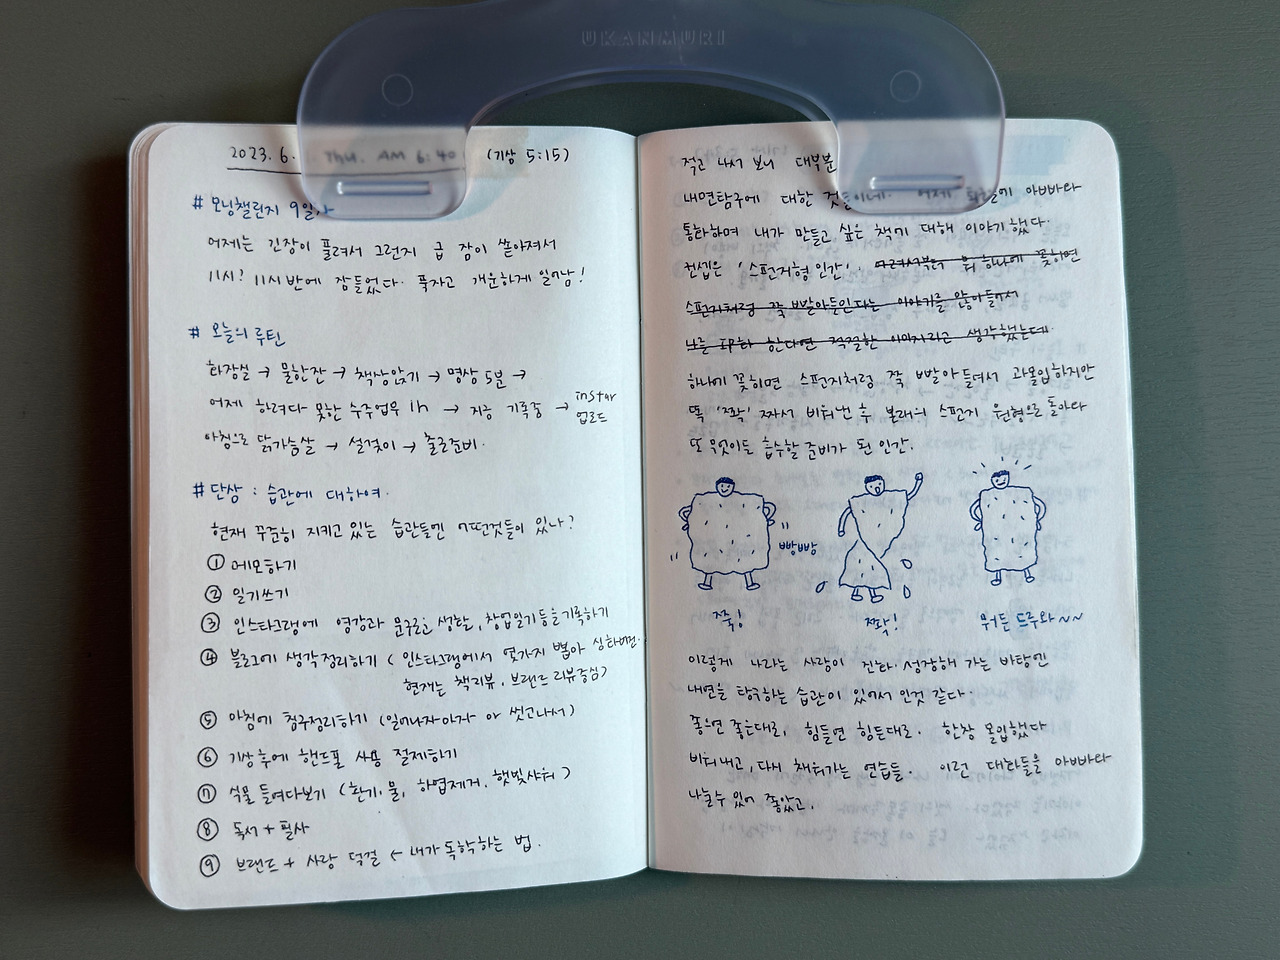 UKANMURI
2023. 6. Thu. AM 6:40 (기상 5:15)
# 모닝챌린지 9일차
어제는 긴장이 풀려서 그런지 급 잠이 쏟아져서
11시? 11시반에 잠들었다. 푹자고 개운하게 일어남!
# 오늘의 루틴
화장실 → 물한잔 → 책상앉기 → 명상 5분 →
어제 하려다 못한 수주업무 1h → 지금 기록중 → instar 업로드
아침으로 닭가슴살 → 설겆이 → 출근준비.
# 단상 : 습관에 대하여.
현재 꾸준히 지키고 있는 습관들엔 어떤것들이 있나?
① 메모하기
② 일기쓰기
③ 인스타그램에 영감과 문구로운 생활, 창업일기 등을 기록하기
④ 블로그에 생각정리하기 (인스타그램에서 몇가지 뽑아 심화버전.
현재는 책리뷰, 브랜드 리뷰중심)
⑤ 아침에 침구정리하기 (일어나자마자 or 씻고나서)
⑥ 기상후에 핸드폰 사용 절제하기
⑦ 식물 들여다보기 (환기, 물, 하엽제거, 햇빛샤워)
⑧ 독서 + 필사
⑨ 브랜드 + 사람 덕질 ← 내가 독학하는 법.
적고 나서 보니 대부분
내면탐구에 대한 것들이네. 어제 퇴근길에 아빠와
통화하며 내가 만들고 싶은 책에 대해 이야기했다.
컨셉은 '스펀지형 인간'. 어려서부터 뭐 하나에 꽂히면
스펀지처럼 쫙 빨아들인다는 이야기를 많이 들어서
나를 표현 한다면 적절한 이미지라고 생각했는데.
하나에 꽂히면 스펀지처럼 쫙 빨아들여서 과몰입하지만
또 '쫘악' 짜서 비워낸 후 본래의 스펀지 원형으로 돌아와
또 무엇이든 흡수할 준비가 된 인간.
빵빵
쭉!
쫘악!
뭐든 드루와~~
이렇게 나라는 사람이 진화, 성장해 가는 바탕엔
내면을 탐구하는 습관이 있어서 인것 같다.
좋으면 좋은대로, 힘들면 힘든대로. 한창 몰입했다
비워내고, 다시 채워가는 연습들. 이런 대화들을 아빠와
나눌수 있어 좋았고.